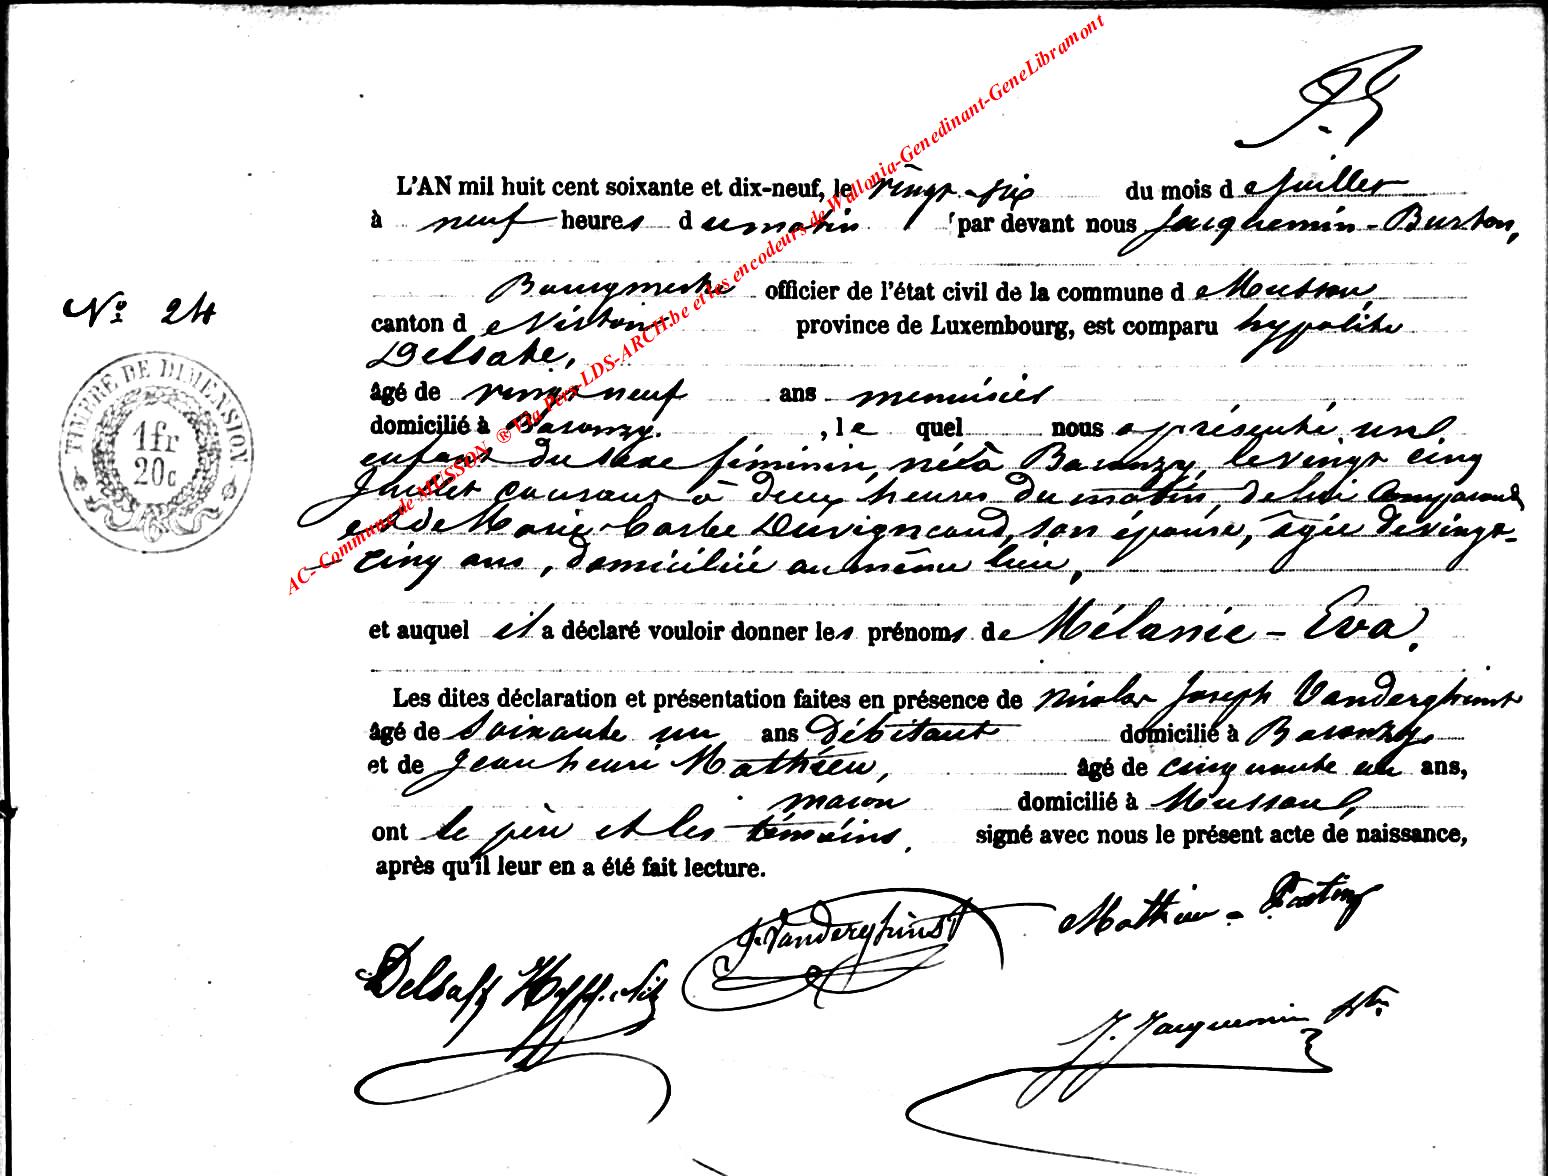 L'AN mil huit cent soixante et dix-neuf, le vingt-six du mois de Juillet
à neuf heures du matin par devant nous Jacquemin-Burton,
Bourgmestre officier de l'état civil de la commune de Musson,
canton de Virton province de Luxembourg, est comparu hypolite
Delsate,
âgé de vingt neuf ans menuisier
domicilié à Baranzy. , le quel nous a présenté un
enfant du sexe féminin, née à Baranzy, le vingt cinq
Juillet courant à deux heures du matin de lui comparant
et de Marie-Barbe Duvigneaud, son épouse, âgée de vingt-
cinq ans, domiciliée au même lieu,
et auquel il a déclaré vouloir donner les prénoms de Mélanie-Eva.
Les dites déclaration et présentation faites en présence de Nicolas Joseph Vanderghinst
âgé de Soixante un ans Débitant domicilié à Baranzy
et de Jean henri Mathieu, âgé de cinquante un ans,
macon domicilié à Musson,
ont le père et les témoins, signé avec nous le présent acte de naissance,
après qu'il leur en a été fait lecture.
Nº 24
TIMBRE DE DIMENSION
1 fr
20 c
J. Vanderghinst
Mathieu -
J. Jacquemin
AC- Commune de MUSSON ® Via Pers-LDS-ARCH.be et les encodeurs de Wallonia-Genedinant-GeneLibramont